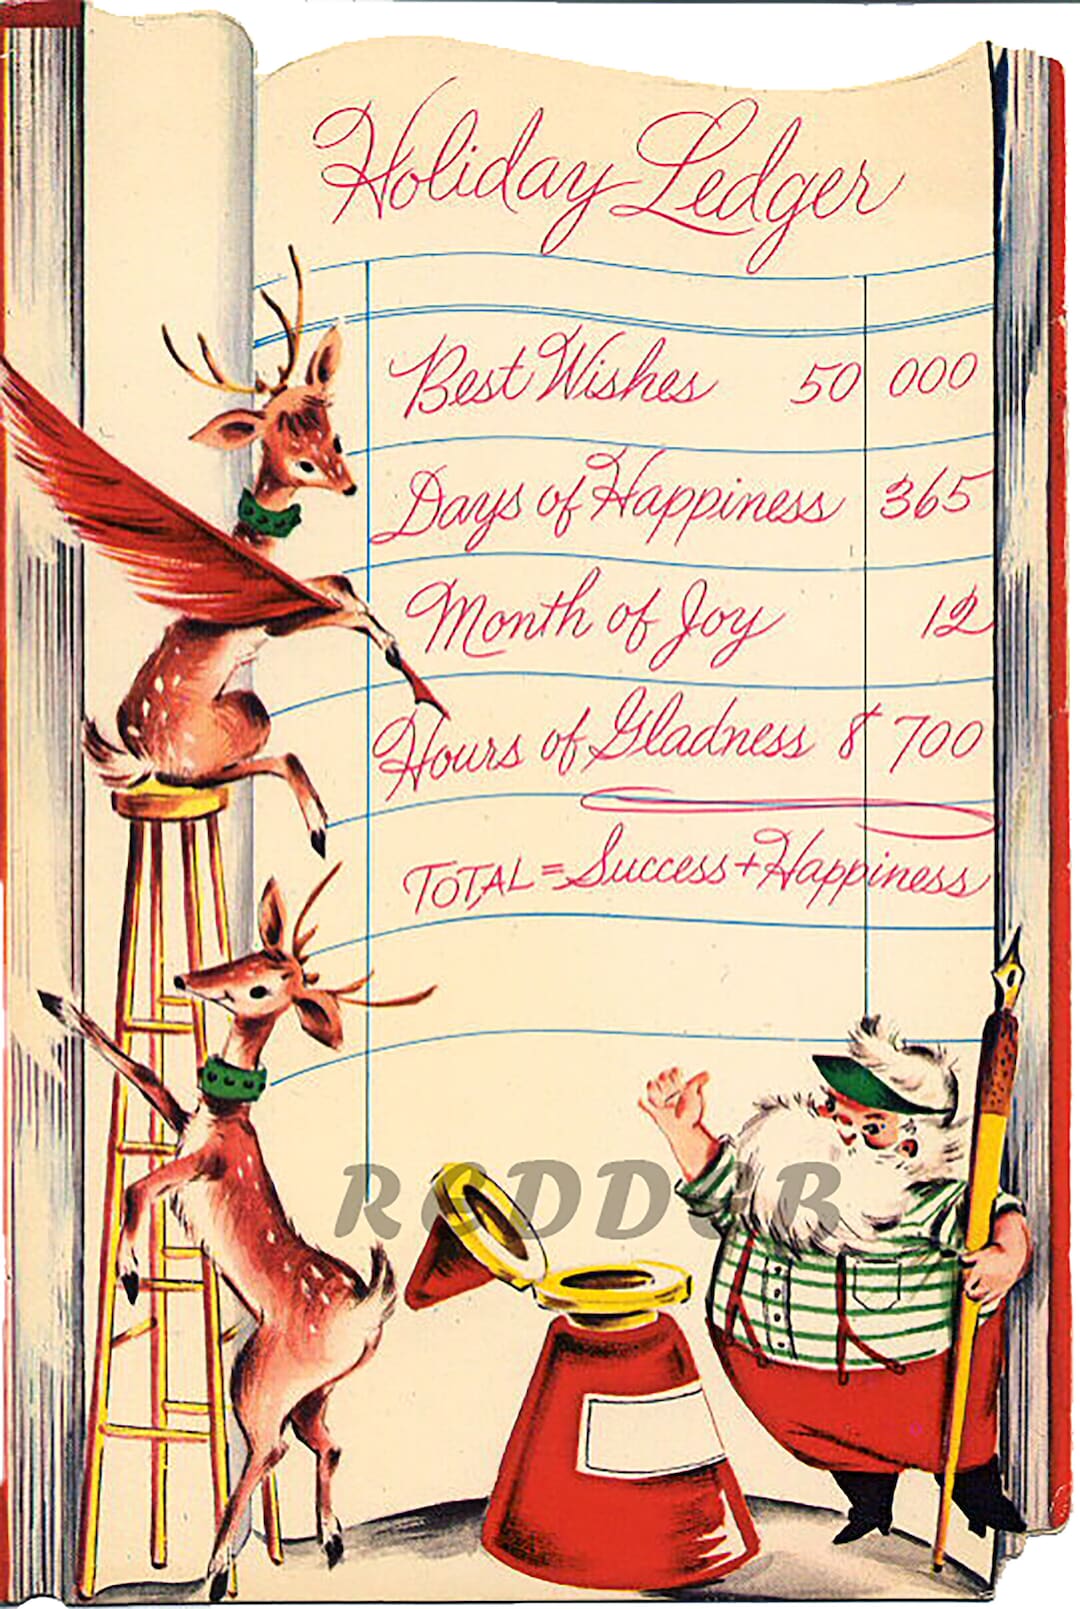 Holiday Ledger
Best Wishes 50 000
Days of Happiness 365
Month of Joy 12
Hours of Gladness 8 700
TOTAL = Success + Happiness
REDDEB